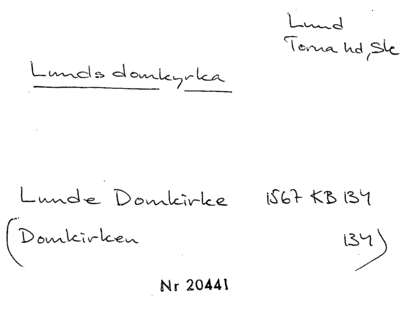 Lund
Torna hd, Sk
Lunds domkyrka
Lunde Domkirke 1567 KB 134
(Domkirken 134)
Nr 20441